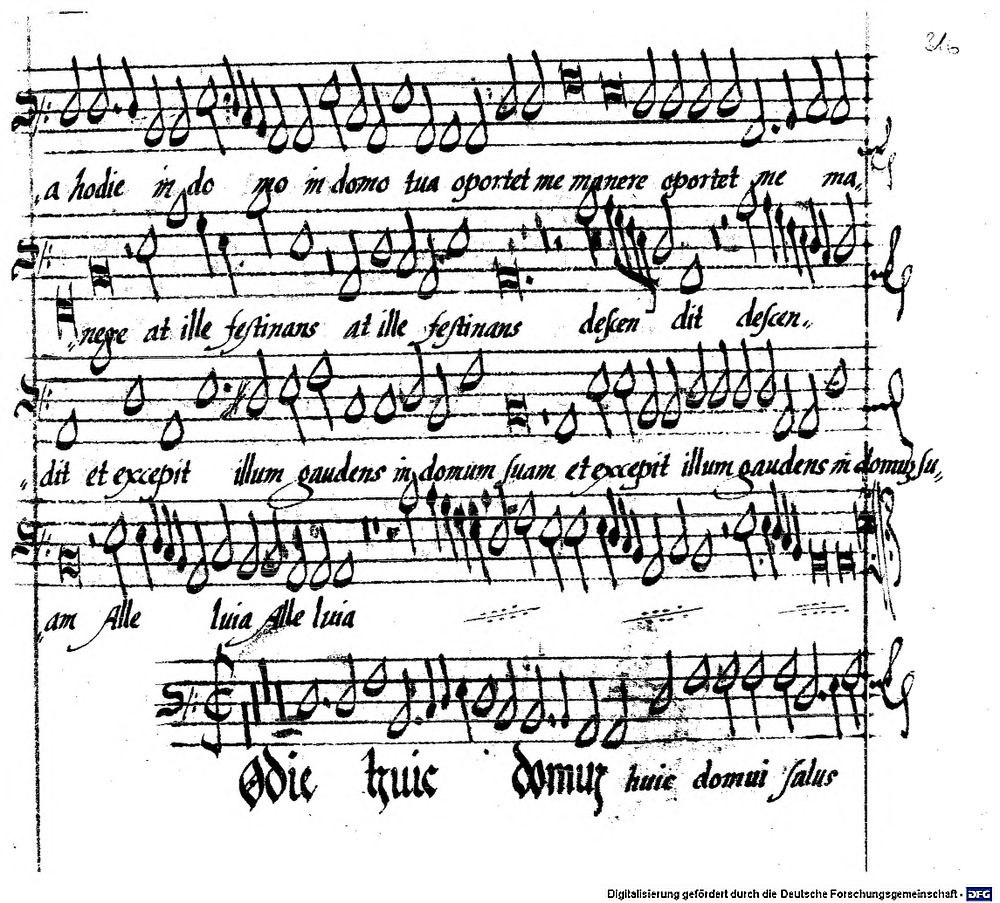 316
a hodie in do mo in domo tua oportet me manere oportet me ma„
„nere at ille festinans at ille festinans descen dit descen„
„dit et excepit illum gaudens in domum suam et excepit illum gaudens in domuȝ su„
„am Alle luia Alle luia
Odie huic domuȝ huic domui salus
Digitalisierung gefördert durch die Deutsche Forschungsgemeinschaft - DFG